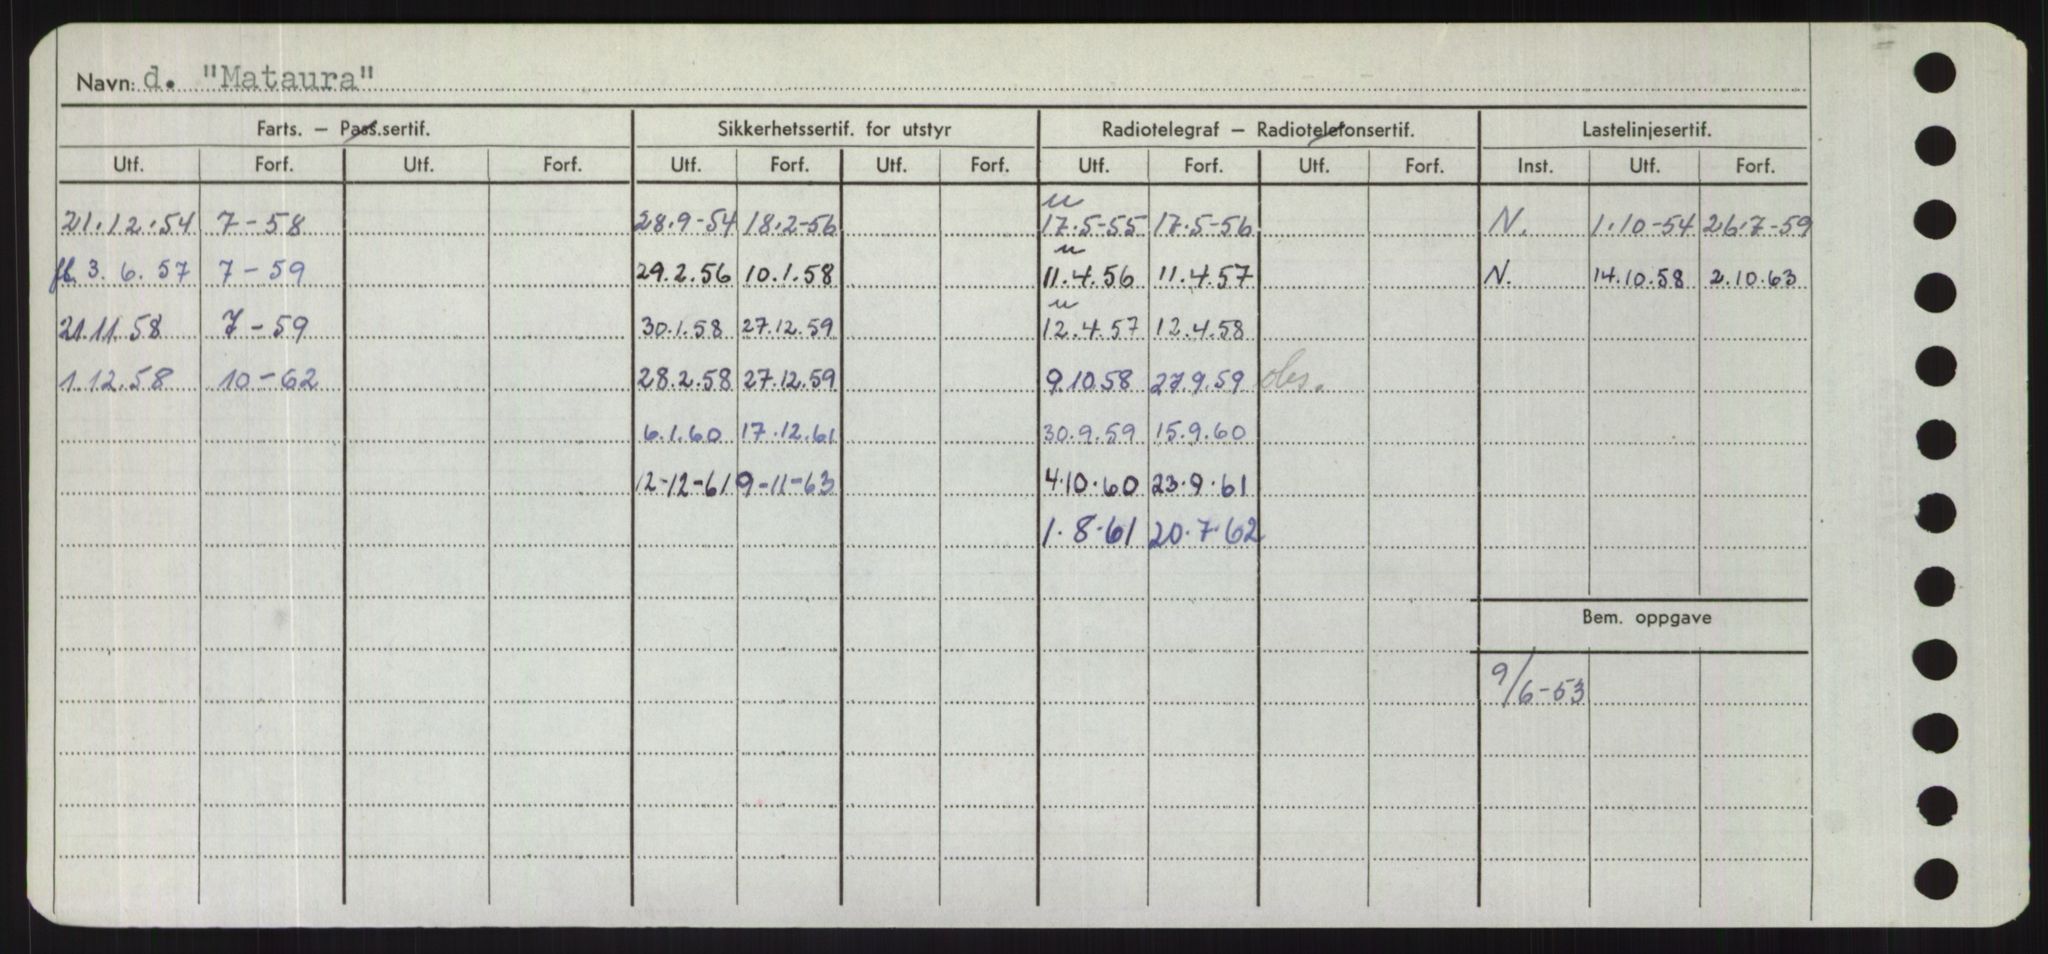 Navn: d. "Mataura"
Farts. — Pass.sertif. Sikkerhetssertif. for utstyr Radiotelegraf — Radiotelefonsertif. Lastelinjesertif.
Utf. Forf. Utf. Forf. Utf. Forf. Utf. Forf. Utf. Forf. Utf. Forf. Inst. Utf. Forf.
u
21.12.54 7-58 28.9-54 18.2-56 17.5-55 17.5-56 N. 1.10-54 26.7-59
u
fl. 3.6.57 7-59 29.2.56 10.1.58 11.4.56 11.4.57 N. 14.10.58 2.10.63
u
21.11.58 7-59 30.1.58 27.12.59 12.4.57 12.4.58
1.12.58 10-62 28.2.58 27.12.59 9.10.58 27.9.59 obs.
6.1.60 17.12.61 30.9.59 15.9.60
12-12-61 9-11-63 4.10.60 23.9.61
1.8.61 20.7.62
Bem. oppgave
9/6-53